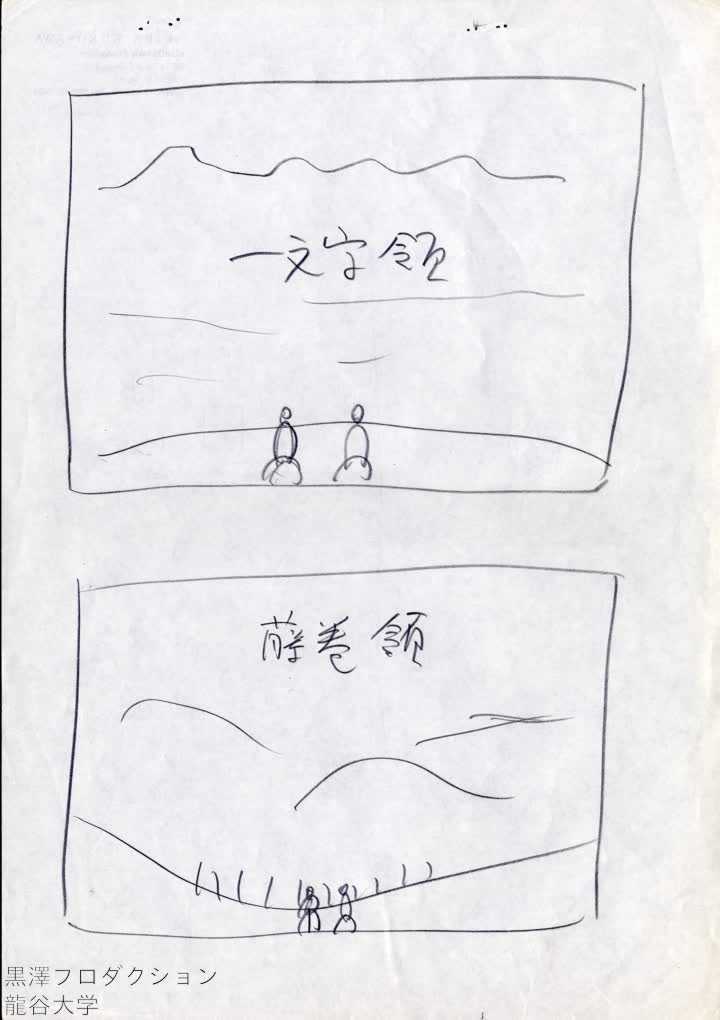 一文字領
藤巻領
黒澤フロダクション
龍谷大学